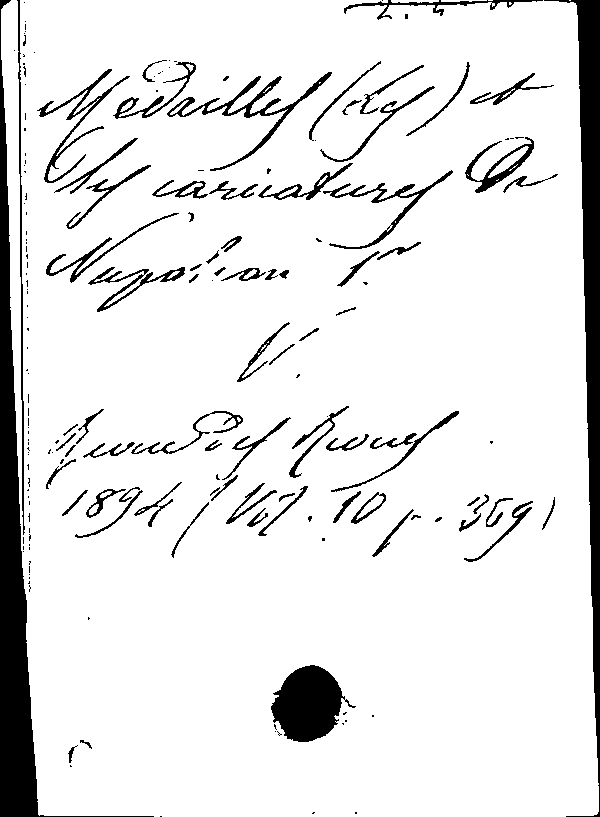 Médailles (Les) et
les caricatures de
Napoléon 1er
V.
Revue des Revues
1894 (Vol. 10 p. 369)